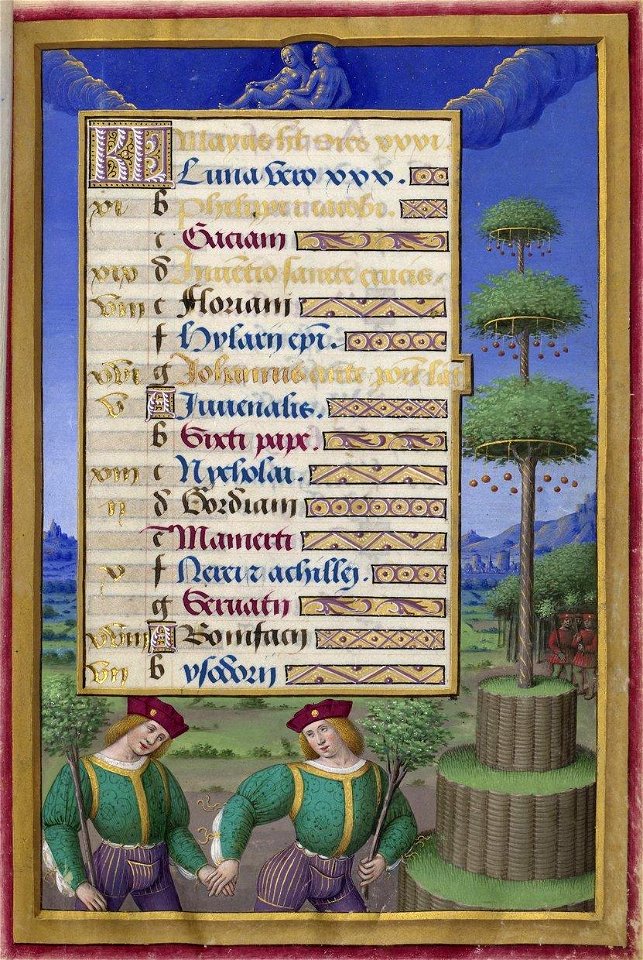 KL Mayus ht dies xxxi.
Luna vero xxx.
xi b Philippi et iacobi.
c Gaciani
xix d Inventio sancte crucis.
viii e Floriani
f Hylarii epi.
xvi g Johannis ante port lat
v A Juuenalis.
b Sixti pape.
xiii c Nycholai.
ii d Gordiani
e Mamerti
x f Nerei z achillei.
g Seruatii
xviii A Bonifacii
vii b ysodorii